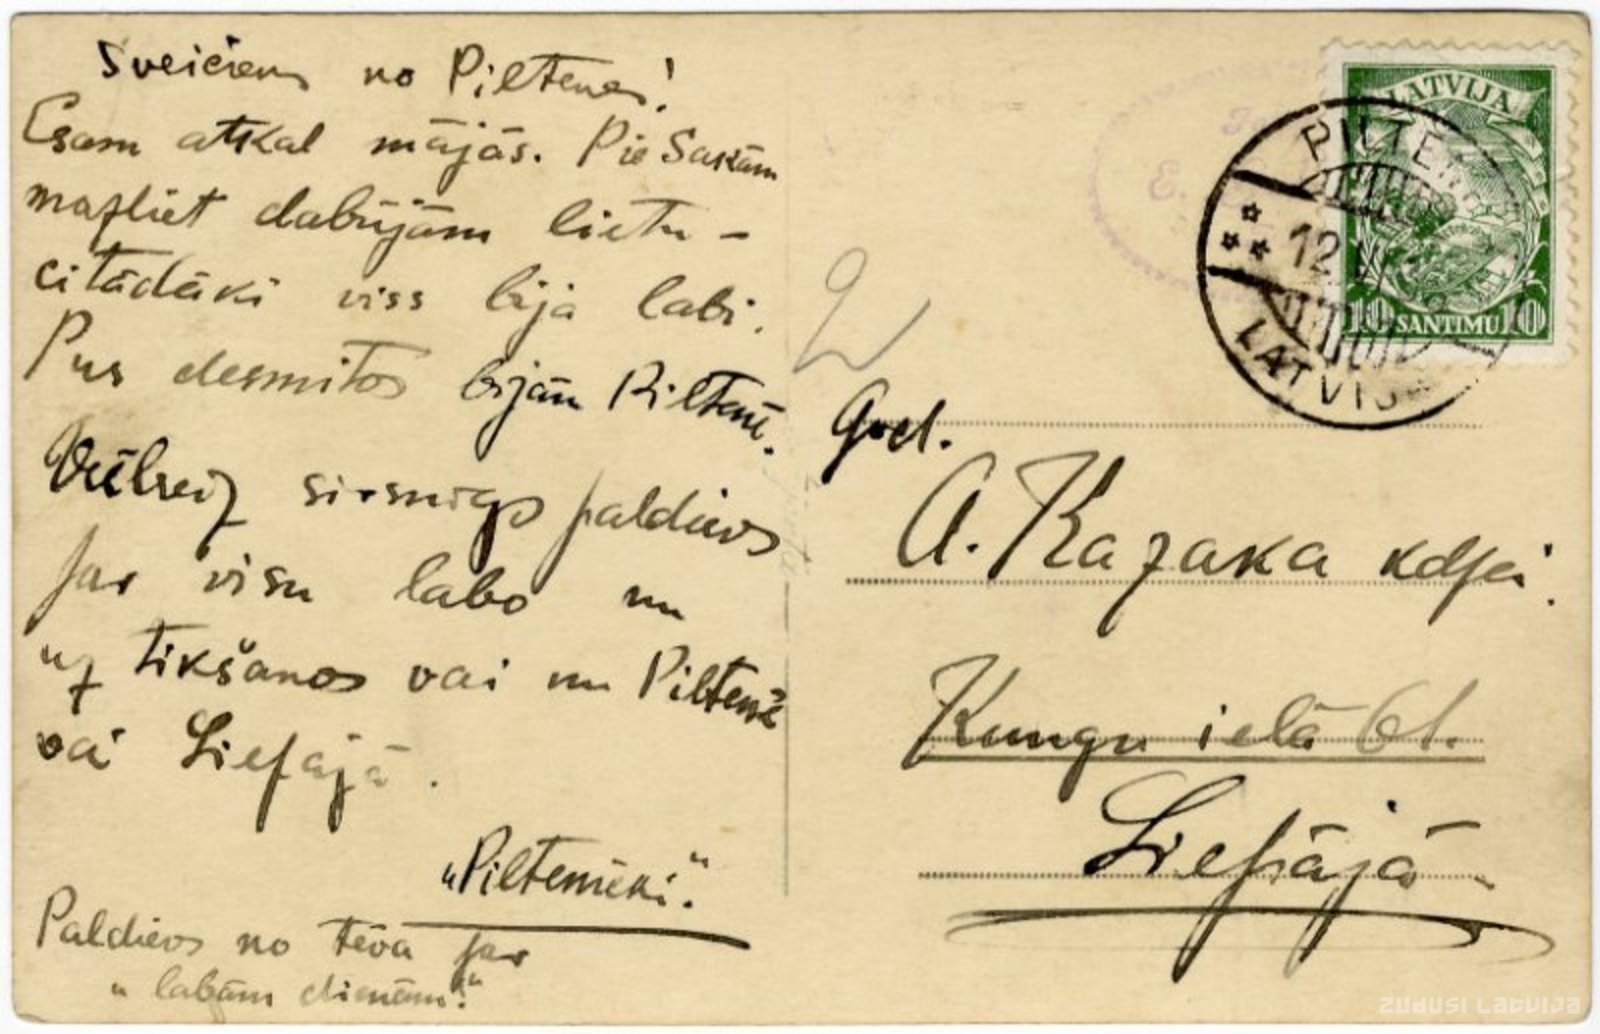 Sveiciens no Piltenes!
Esam atkal mājās. Pie Sakām
mazliet dabūjām lietu –
citādāki viss bija labi.
Pus desmitos bijām Piltenē.
Vēlreiz sirsnīgs paldievs
par visu labo un
uz tikšanos vai nu Piltenē
vai Liepājā.
„Piltenieki."
Paldievs no tēva par
„labām dienām!"
LATVIJA
10 SANTIMU 10
PILTENE
12
LATVIJA
God.
A. Kazaka kdzei.
Kungu ielā 61.
Liepājā
ZUDUSI LATVIJA